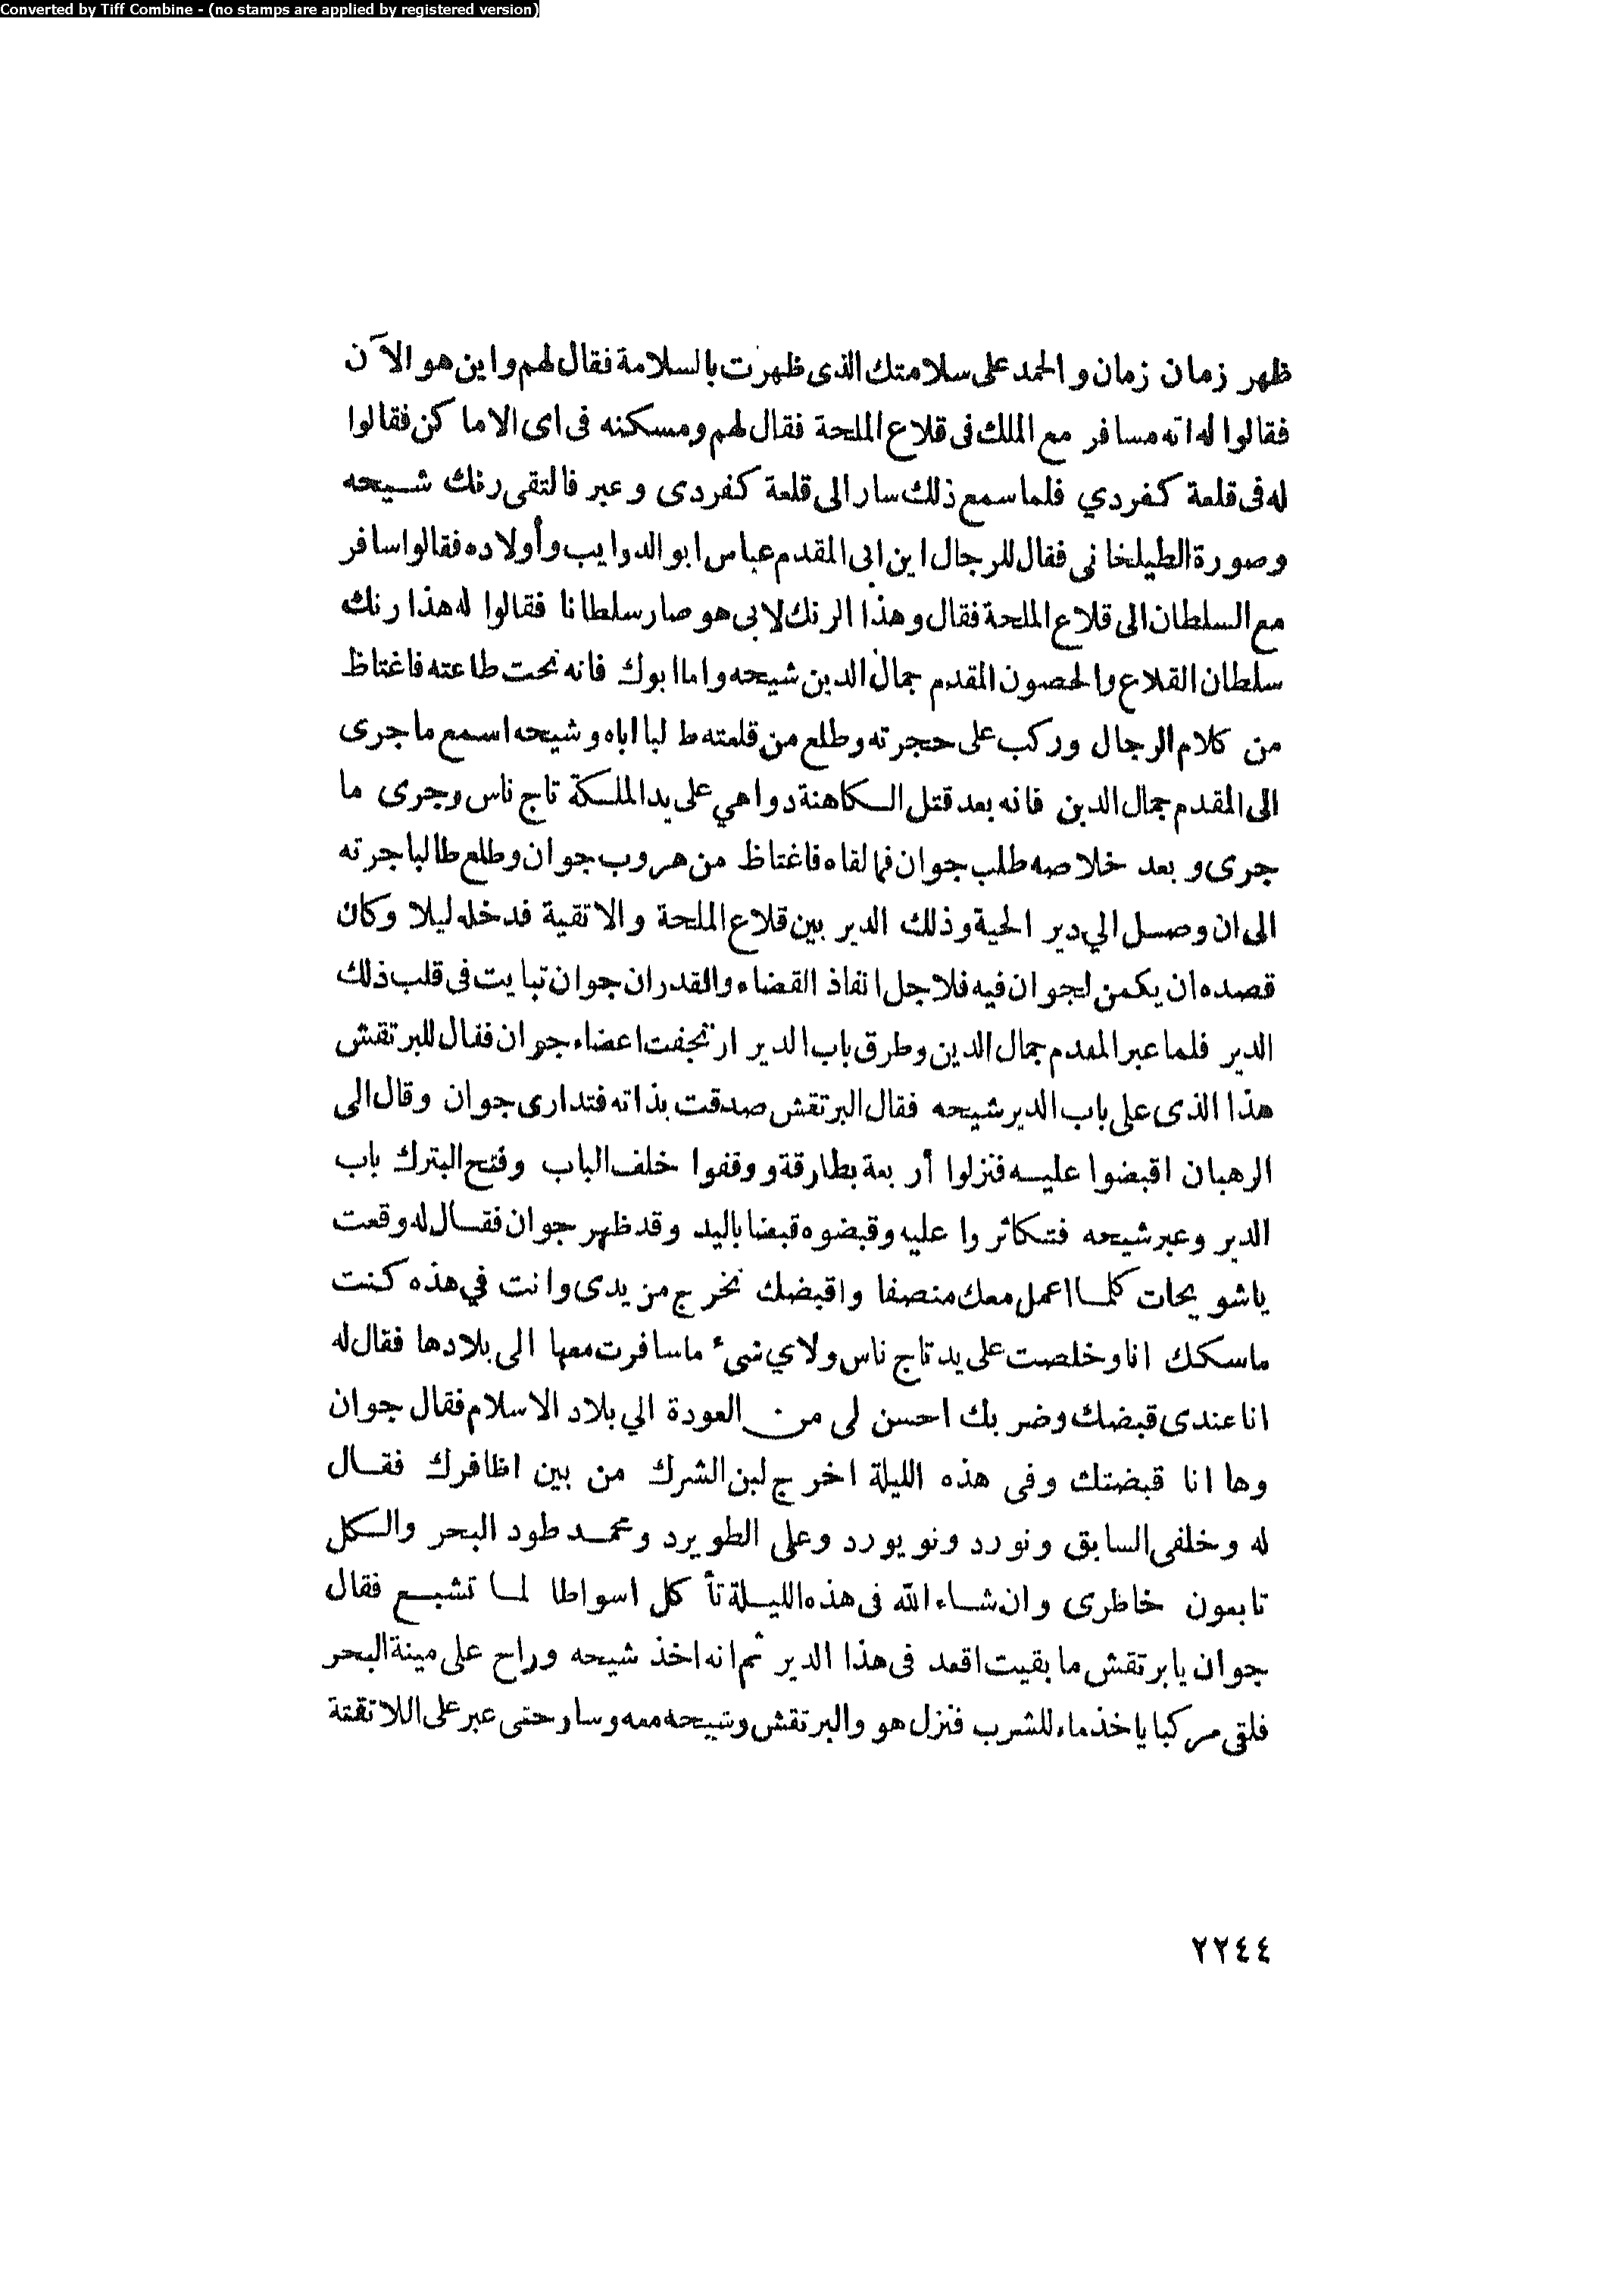 Converted by Tiff Combine - (no stamps are applied by registered version)
ظهر زمان زمان والحمد على سلامتك الذى ظهرت بالسلامة فقال لهم واين هو الآن
فقالوا له انه مسافر مع الملك فى قلاع الملحة فقال لهم ومسكنه فى اى الاماكن فقالوا
له فى قلعة كفردي فلما سمع ذلك سار الى قلعة كفردى وعبر فالتقى رنك شيحه
وصورة الطيلخانى فقال للرجال اين ابى المقدم عباس ابو الدوايب وأولاده فقالوا سافر
مع السلطان الى قلاع الملحة فقال وهذا الرنك لابى هو صار سلطانا فقالوا له هذا رنك
سلطان القلاع والحصون المقدم جمال الدين شيحه واما ابوك فانه تحت طاعته فاغتاظ
من كلام الرجال وركب على حجرته وطلع من قلعته طالبا اباه وشيحه اسمع ما جرى
الى المقدم جمال الدين فانه بعد قتل الكاهنة دواهي على يد الملكة تاج ناس وجرى ما
جرى وبعد خلاصه طلب جوان فما لقاه فاغتاظ من هروب جوان وطلع طالبا جرته
الى ان وصل الي دير الحية وذلك الدير بين قلاع الملحة والاتقية فدخله ليلا وكان
قصده ان يكمن لجوان فيه فلاجل انفاذ القضاء والقدر ان جوان تبايت فى قلب ذلك
الدير فلما عبر المقدم جمال الدين وطرق باب الدير ارتجفت اعضاء جوان فقال للبرتقش
هذا الذى على باب الدير شيحه فقال البرتقش صدقت بذاته فتدارى جوان وقال الى
الرهبان اقبضوا عليه فنزلوا أربعة بطارقة ووقفوا خلف الباب وفتح البترك باب
الدير وعبر شيحه فتكاثروا عليه وقبضوه قبضا باليد وقد ظهر جوان فقال له وقعت
ياشويحات كلما اعمل معك منصفا واقبضك تخرج من يدى وانت في هذه كنت
ماسكك انا وخلصت على يد تاج ناس ولاي شىء ما سافرت معها الى بلادها فقال له
انا عندى قبضك وضربك احسن لى من العودة الي بلاد الاسلام فقال جوان
وها انا قبضتك وفى هذه الليلة اخرج لبن الشرك من بين اظافرك فقال
له وخلفى السابق ونورد ونويورد وعلى الطويرد ومحمد طود البحر والكل
تابعون خاطرى وان شاء الله فى هذه الليلة تأكل اسواطا لما تشبع فقال
جوان يابرتقش ما بقيت اقعد فى هذا الدير ثم انه اخذ شيحه وراح على مينة البحر
فلقى مركبا ياخذ ماء للشرب فنزل هو والبرتقش وشيحه معه وسار حتى عبر على اللاتقتة
٢٢٤٤